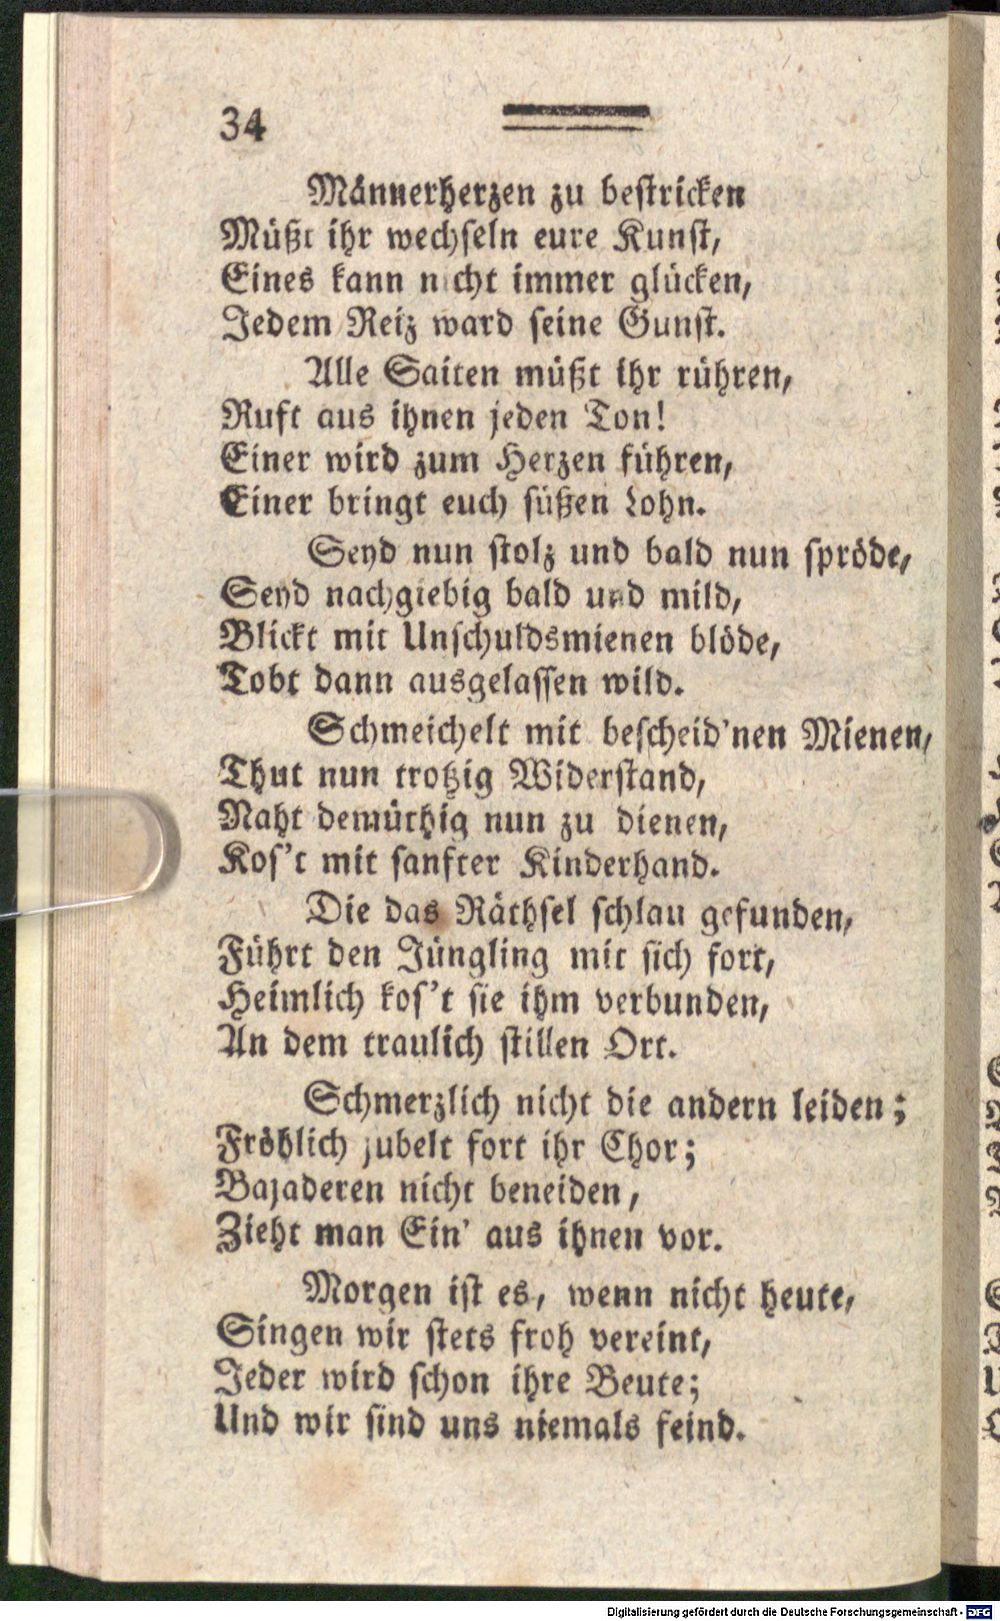 34
Männerherzen zu bestricken
Müßt ihr wechseln eure Kunst,
Eines kann nicht immer glücken,
Jedem Reiz ward seine Gunst.
Alle Saiten müßt ihr rühren,
Ruft aus ihnen jeden Ton!
Einer wird zum Herzen führen,
Einer bringt euch süßen Lohn.
Seyd nun stolz und bald nun spröde,
Seyd nachgiebig bald und mild,
Blickt mit Unschuldsmienen blöde,
Tobt dann ausgelassen wild.
Schmeichelt mit bescheid'nen Mienen,
Thut nun trotzig Widerstand,
Naht demüthig nun zu dienen,
Kos't mit sanfter Kinderhand.
Die das Räthsel schlau gefunden,
Führt den Jüngling mit sich fort,
Heimlich kos't sie ihm verbunden,
An dem traulich stillen Ort.
Schmerzlich nicht die andern leiden;
Fröhlich jubelt fort ihr Chor;
Bajaderen nicht beneiden,
Zieht man Ein' aus ihnen vor.
Morgen ist es, wenn nicht heute,
Singen wir stets froh vereint,
Jeder wird schon ihre Beute;
Und wir sind uns niemals feind.
Digitalisierung gefördert durch die Deutsche Forschungsgemeinschaft - DFG